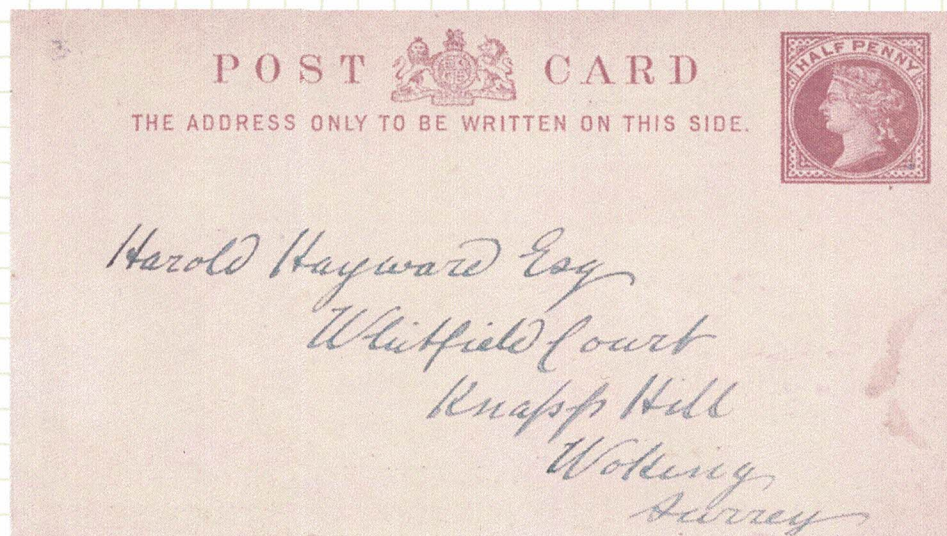 POST CARD
HALF PENNY
THE ADDRESS ONLY TO BE WRITTEN ON THIS SIDE.
Harold Hayward Esq
Whitfield Court
Knapp Hill
Woking
Surrey